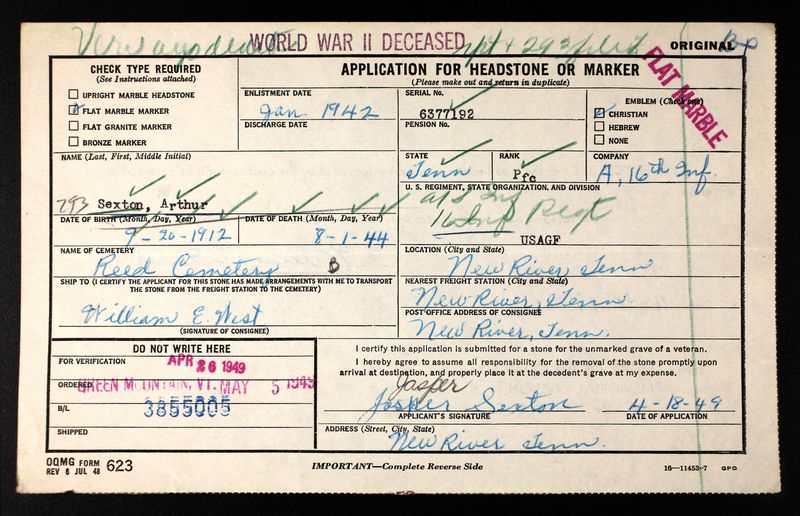 WORLD WAR II DECEASED
ORIGINAL
FLAT MARBLE
CHECK TYPE REQUIRED
(See Instructions attached)
UPRIGHT MARBLE HEADSTONE
FLAT MARBLE MARKER
FLAT GRANITE MARKER
BRONZE MARKER
APPLICATION FOR HEADSTONE OR MARKER
(Please make out and return in duplicate)
ENLISTMENT DATE
Jan. 1942
DISCHARGE DATE
SERIAL No.
6377192
PENSION No.
EMBLEM (Check one)
CHRISTIAN
HEBREW
NONE
NAME (Last, First, Middle Initial)
293 Sexton, Arthur
STATE
Tenn
RANK
Pfc
COMPANY
A, 16th Inf.
U. S. REGIMENT, STATE ORGANIZATION, AND DIVISION
16 Inf Regt
USAGF
DATE OF BIRTH (Month, Day, Year)
9-20-1912
DATE OF DEATH (Month, Day, Year)
8-1-44
NAME OF CEMETERY
Reed Cemetery B
LOCATION (City and State)
New River, Tenn
SHIP TO (I CERTIFY THE APPLICANT FOR THIS STONE HAS MADE ARRANGEMENTS WITH ME TO TRANSPORT
THE STONE FROM THE FREIGHT STATION TO THE CEMETERY)
William E. West
(SIGNATURE OF CONSIGNEE)
NEAREST FREIGHT STATION (City and State)
New River, Tenn.
POST OFFICE ADDRESS OF CONSIGNEE
New River, Tenn.
DO NOT WRITE HERE
FOR VERIFICATION
APR 26 1949
ORDERED
GREEN MOUNTAIN, VT. MAY 5 1949
B/L
3855005
SHIPPED
I certify this application is submitted for a stone for the unmarked grave of a veteran.
I hereby agree to assume all responsibility for the removal of the stone promptly upon
arrival at destination, and properly place it at the decedent's grave at my expense.
Jasper
Jasper Sexton 4-18-49
APPLICANT'S SIGNATURE
DATE OF APPLICATION
ADDRESS (Street, City, State)
New River Tenn.
OQMG FORM
REV 6 JUL 48 623
IMPORTANT—Complete Reverse Side
16—11453-7 GPO